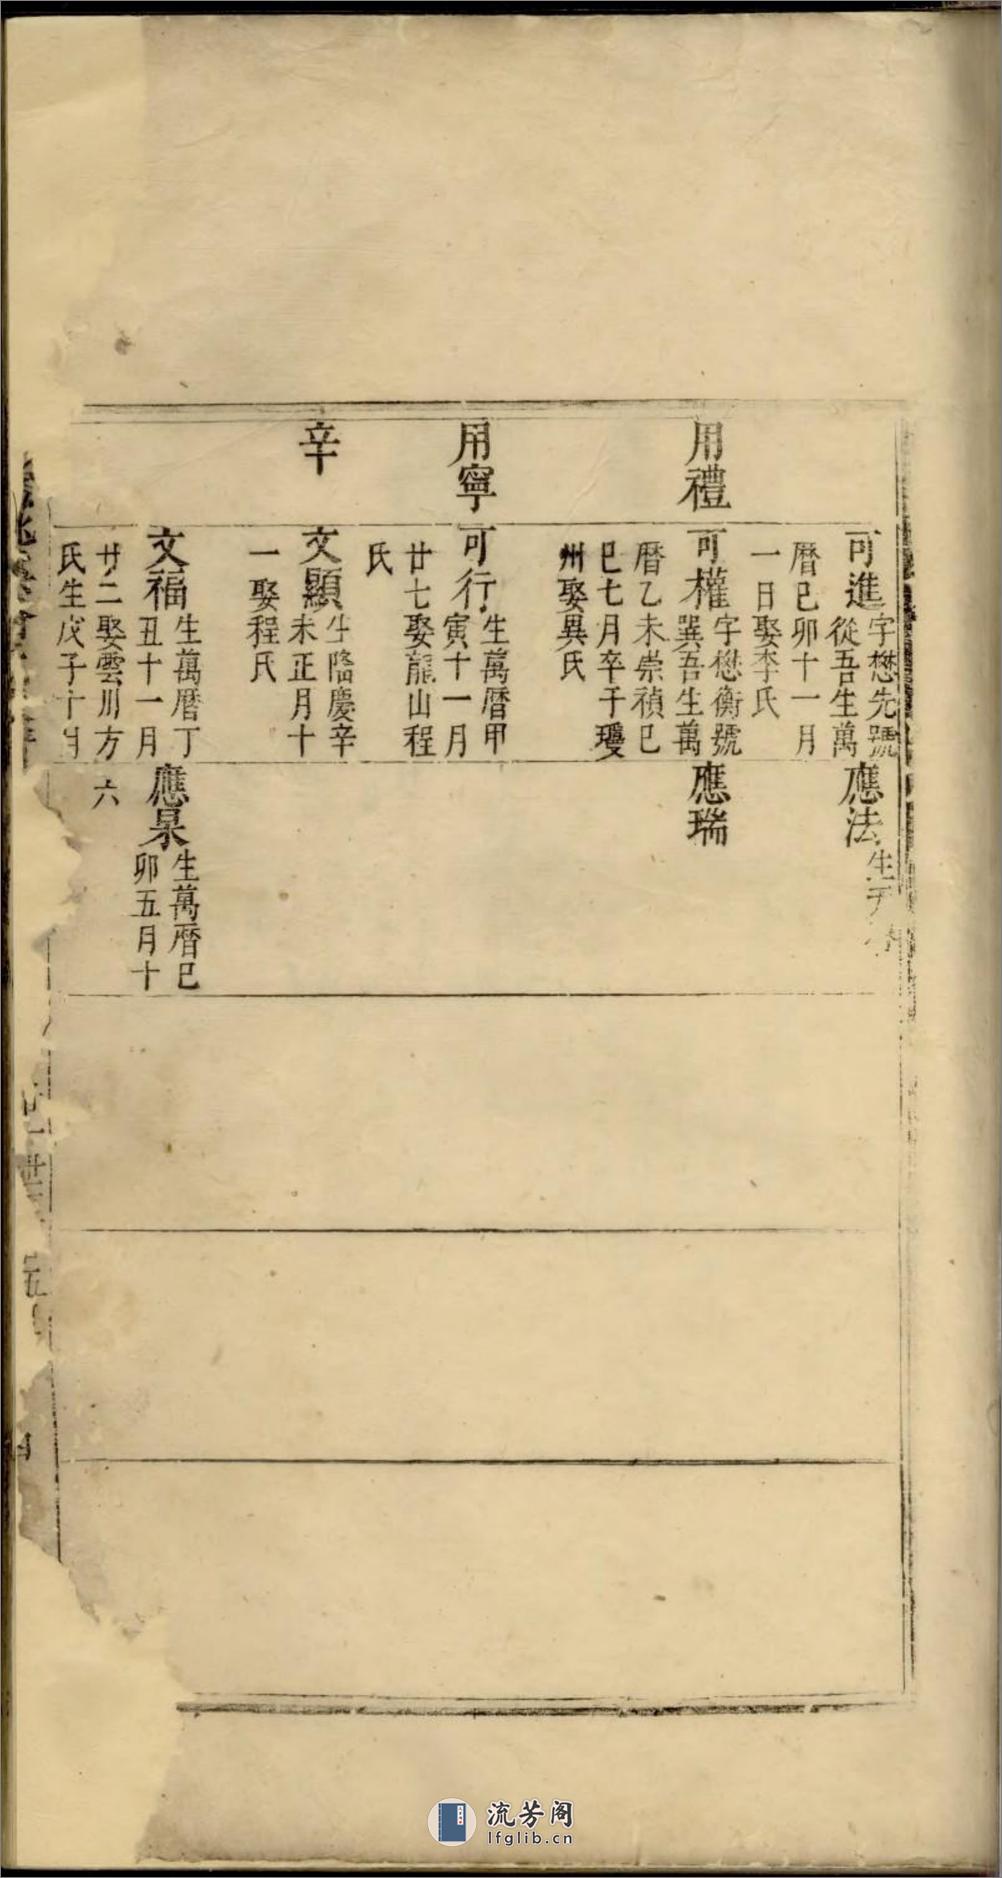 用禮
用寧
辛
可進
字懋先號
從吾生萬
暦己卯十一月
一日娶李氏
可權
字懋衡號
巽吾生萬
暦乙未崇禎己
巳七月卒于瓊
州娶異氏
可行
生萬暦甲
寅十一月
廿七娶龍山程
氏
文顯
生隆慶辛
未正月十
一娶程氏
文福
生萬暦丁
丑十一月
廿二娶雲川方
氏生戊子十月
六
應法
生天
應瑞
應杲
生萬暦己
卯五月十
廿一世
五
流芳阁
lfglib.cn